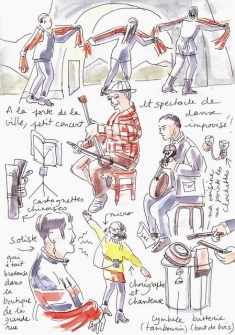 A la porte de la
ville, petit concert
et spectacle de
danse
improvisé!
castagnettes
chinoises
micro
soliste
qui
était
brodeuse
dans
la
boutique
de la
grande
rue
Chorégraphe
et
chanteur
clochettes
cymbale, batterie
tambourin (bout de bois)